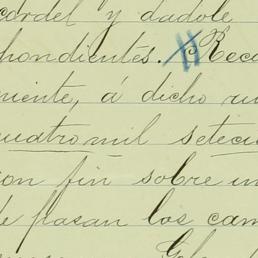 cordel y dadole
pondientés. Reco
niente, á dicho ru
cuatro mil seteci
con fin sobre un
de pasan los cam